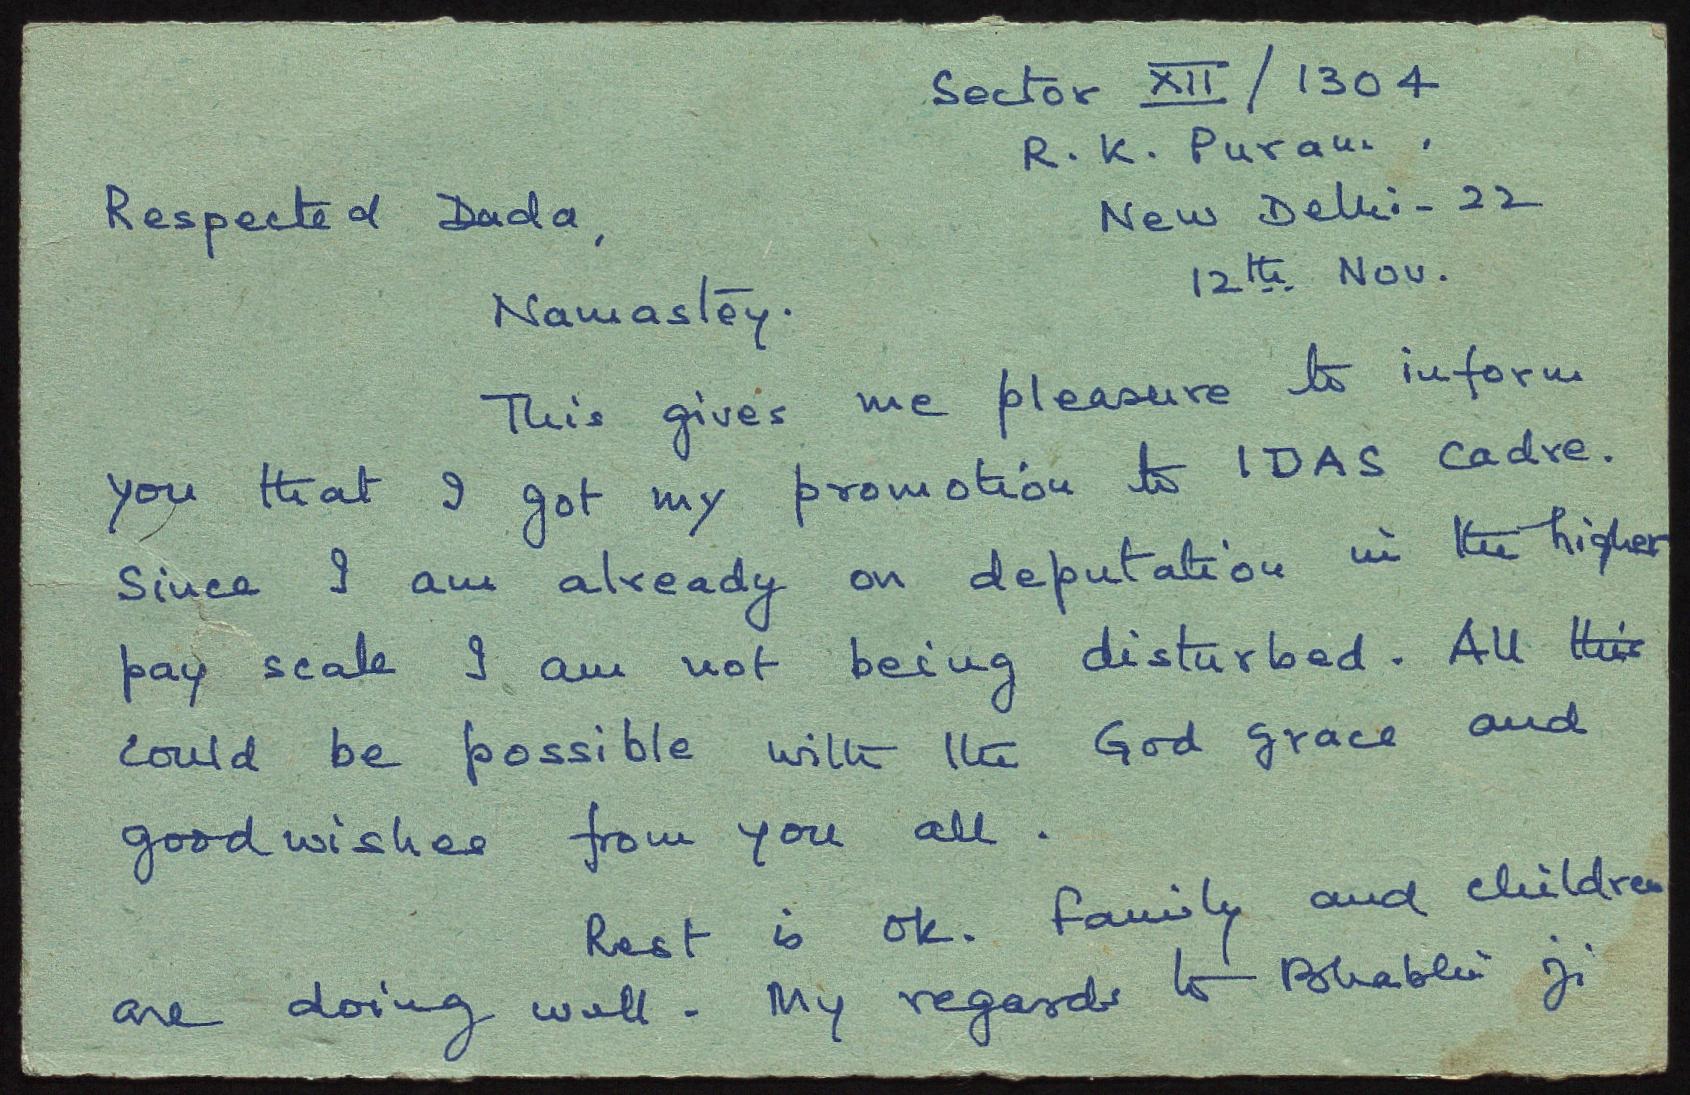 Sector XII / 1304
R. K. Puram.
New Delhi - 22
12th Nov.
Respected Dada,
Namastēy.
This gives me pleasure to inform
you that I got my promotion to IDAS cadre.
Since I am already on deputation in the higher
pay scale I am not being disturbed. All this
could be possible with the God grace and
good wishes from you all.
Rest is ok. Family and children
are doing well. My regards to Bhabhi ji